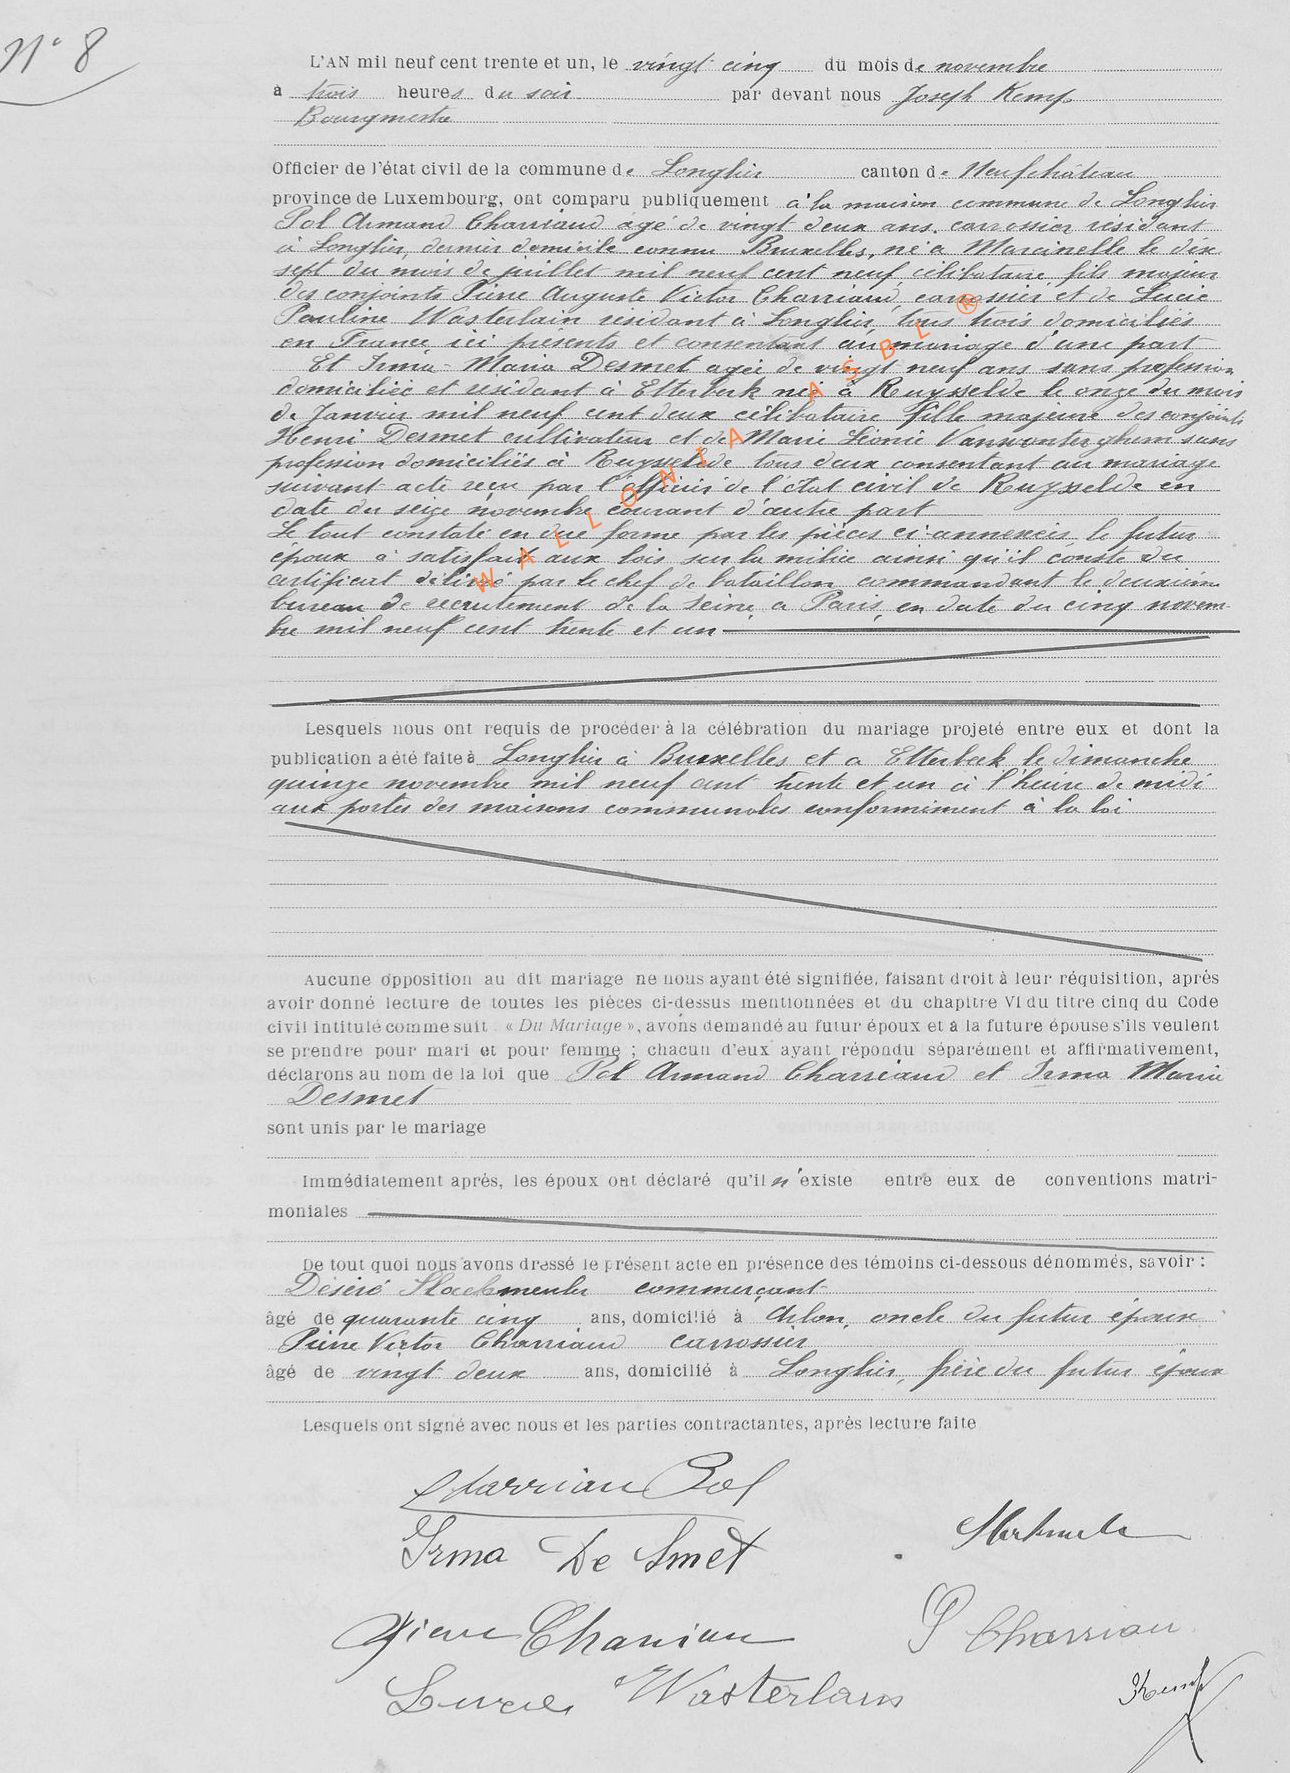 N° 8
L'AN mil neuf cent trente et un, le vingt cinq du mois de novembre
à trois heures du soir par devant nous Joseph Kemp
Bourgmestre
Officier de l'état civil de la commune de Longlier canton de Neufchâteau
province de Luxembourg, ont comparu publiquement à la maison commune de Longlier
Pol Armand Charriaud agé de vingt deux ans, carrossier résidant
à Longlier, dernier domicile connu Bruxelles, né à Marcinelle le dix
sept du mois de juillet mil neuf cent neuf, célibataire, fils majeur
des conjoints Pierre Auguste Victor Charriaud, carrossier et de Lucie
Pauline Wasterlain résidant à Longlier, tous trois domiciliés
en France ici présents et consentant au mariage d'une part
Et Irma-Maria Desmet agée de vingt neuf ans sans profession
domiciliée et résidant à Etterbeek née à Ruysselede le onze du mois
de Janvier mil neuf cent deux célibataire fille majeure des conjoints
Henri Desmet cultivateur et de Marie Léonie Vanwonterghem sans
profession domiciliés à Ruysselede tous deux consentant au mariage
suivant acte reçu par l'officier de l'état civil de Ruysselede en
date du seize novembre courant d'autre part
Le tout constaté en due forme par les pièces ci-annexées, le futur
époux a satisfait aux lois sur la milice ainsi qu'il conste du
certificat délivré par le chef de bataillon commandant le deuxième
bureau de recrutement de la Seine, à Paris, en date du cinq novem-
bre mil neuf cent trente et un
WALLONIA ASBL ®
Lesquels nous ont requis de procéder à la célébration du mariage projeté entre eux et dont la
publication a été faite à Longlier à Bruxelles et a Etterbeek le dimanche
quinze novembre mil neuf cent trente et un à l'heure de midi
aux portes des maisons communales conformément à la loi
Aucune opposition au dit mariage ne nous ayant été signifiée, faisant droit à leur réquisition, après
avoir donné lecture de toutes les pièces ci-dessus mentionnées et du chapitre VI du titre cinq du Code
civil intitulé comme suit : « Du Mariage », avons demandé au futur époux et à la future épouse s'ils veulent
se prendre pour mari et pour femme ; chacun d'eux ayant répondu séparément et affirmativement,
déclarons au nom de la loi que Pol Armand Charriaud et Irma Maria
Desmet
sont unis par le mariage
Immédiatement après, les époux ont déclaré qu'il n'existe entre eux de conventions matri-
moniales
De tout quoi nous avons dressé le présent acte en présence des témoins ci-dessous dénommés, savoir :
Désiré commerçant
âgé de quarante cinq ans, domicilié à Arlon, oncle du futur époux
Pierre Victor Charriaud carrossier
âgé de vingt deux ans, domicilié à Longlier, frère du futur époux
Lesquels ont signé avec nous et les parties contractantes, après lecture faite
Charriau Pol
Irma De Smet
Pierre Charriau P Charriau
Wasterlain Kemp